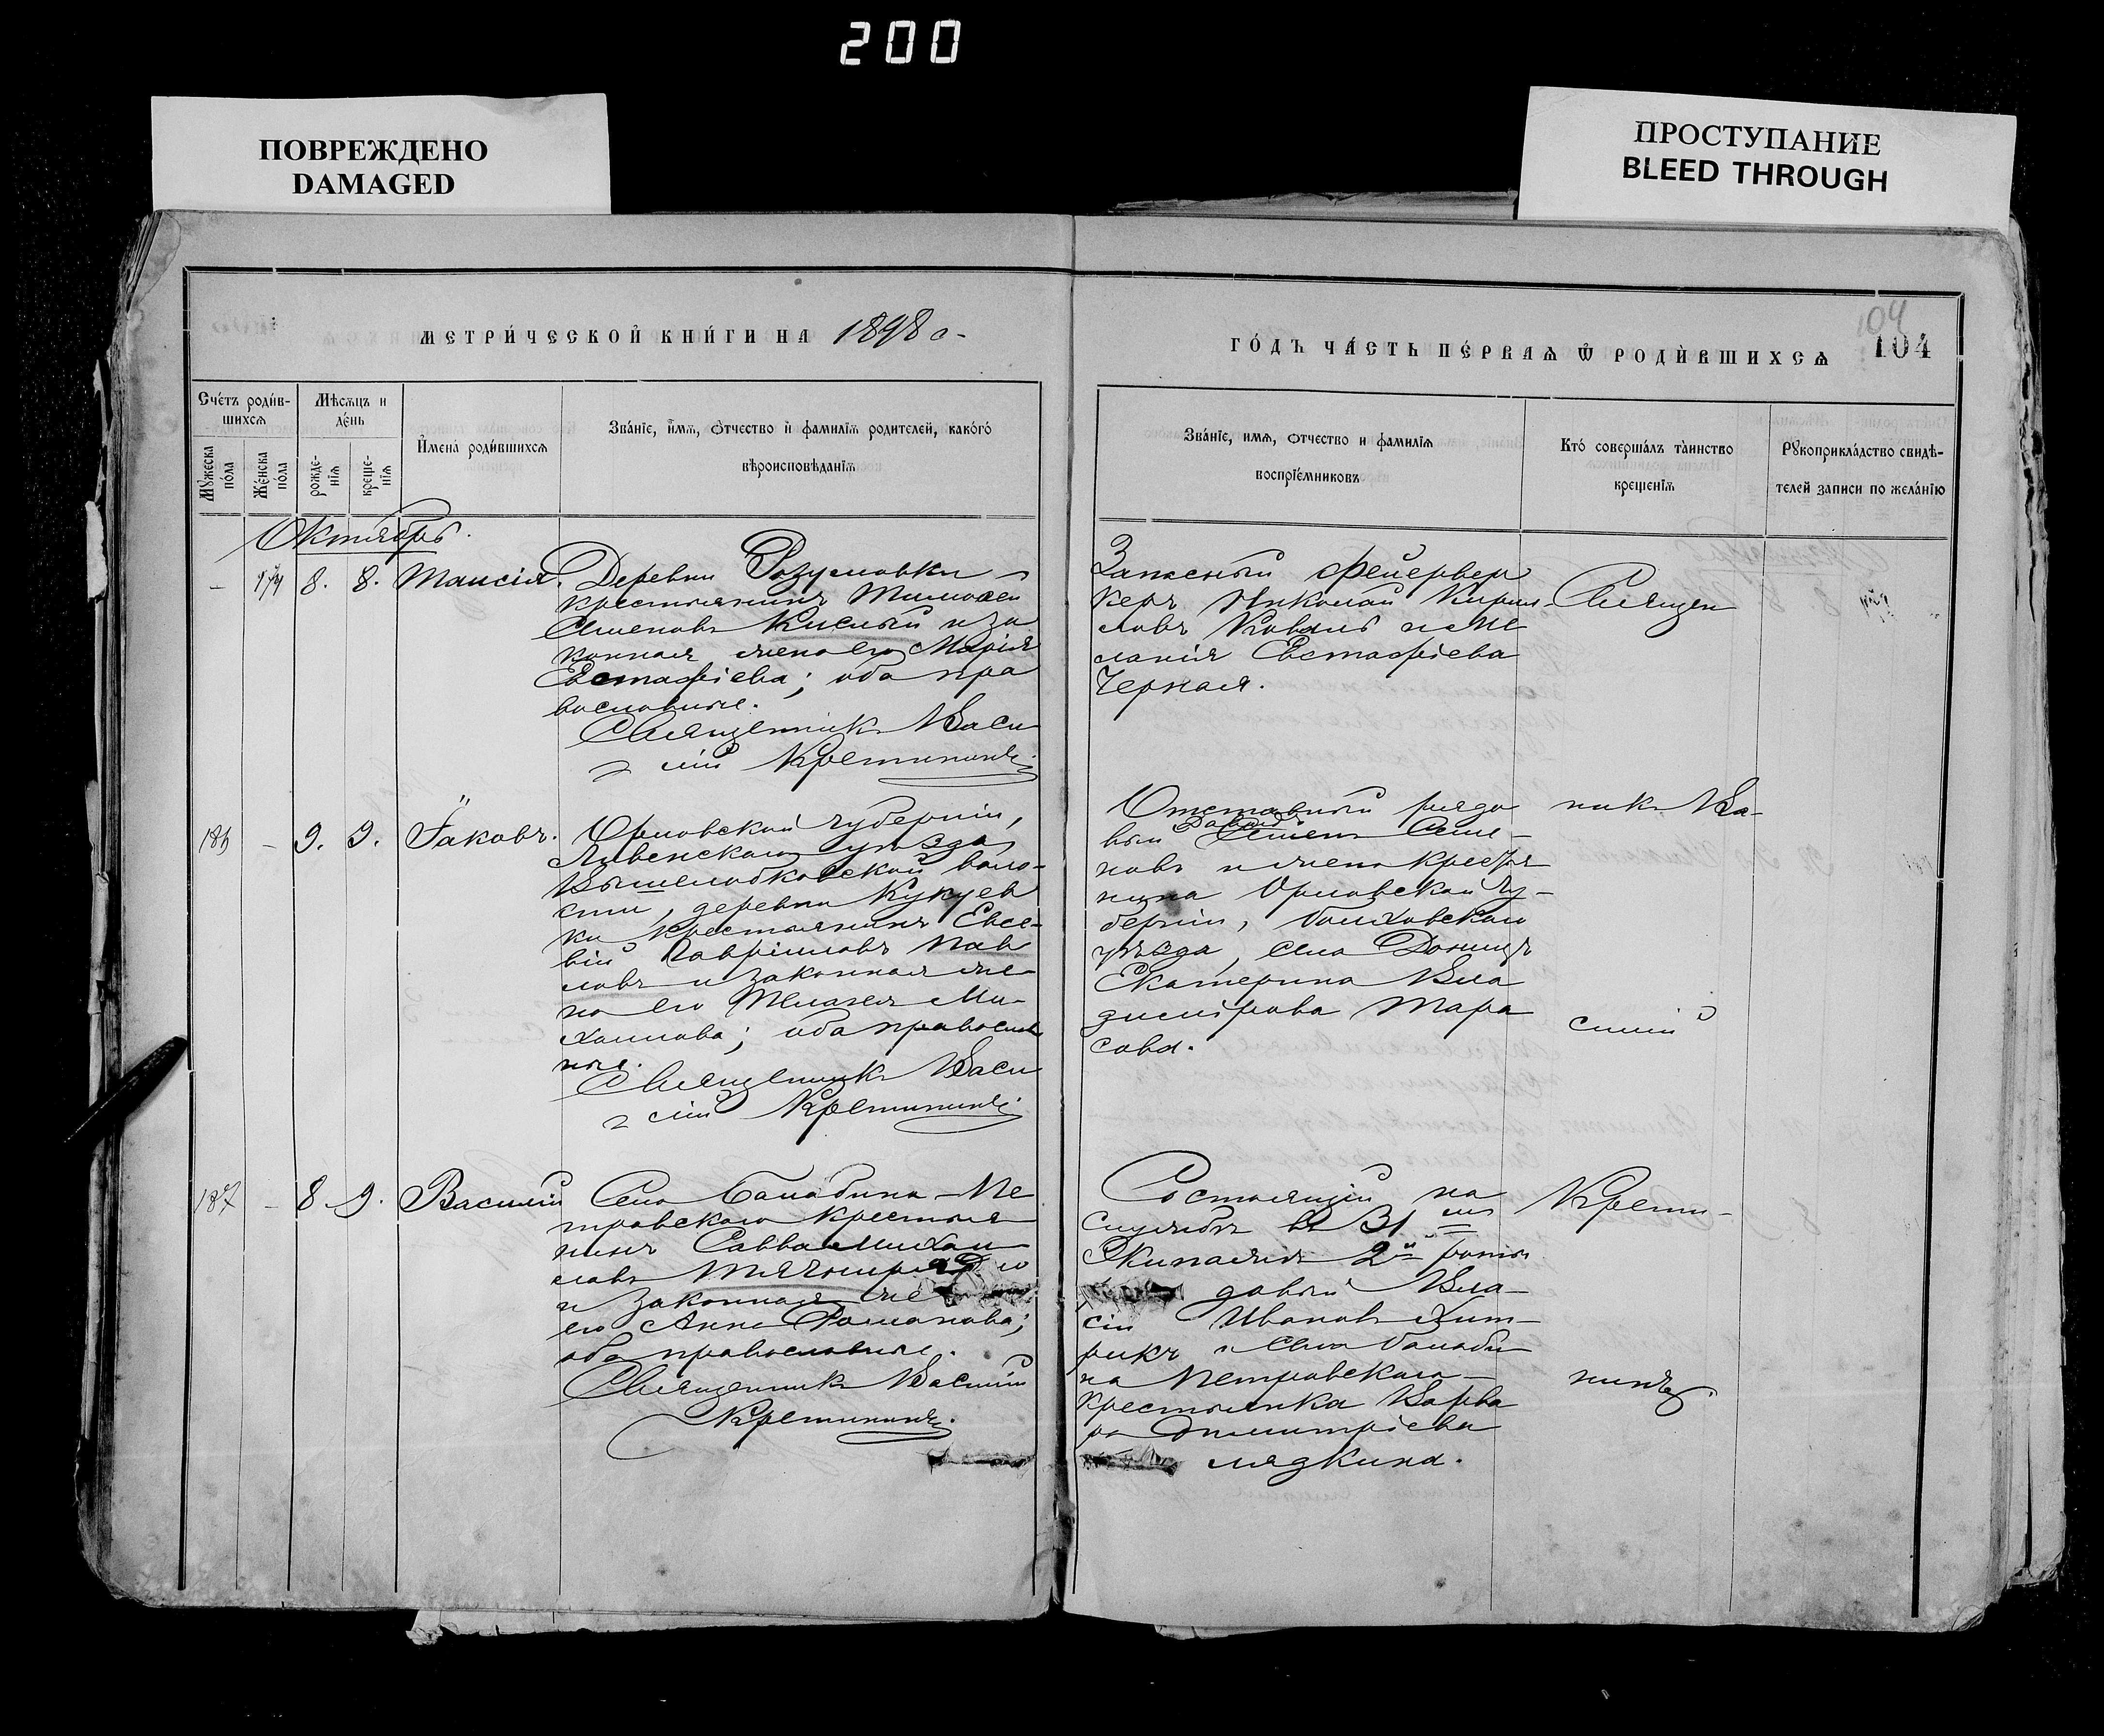 200
ПОВРЕЖДЕНО
DAMAGED
ПРОСТУПАНИЕ
BLEED THROUGH
МЕТРИ́ЧЕСКОЙ КНИ́ГИ НА 1898 г.
ГО́ДЪ ЧА́СТЬ ПЕ́РВАѦ Ѿ РОДИ́ВШИХСѦ
104
104
Сче́тъ роди́в-
шихсѧ
Мѣсѧцъ и
де́нь
Мꙋжеска
по́ла
Же́нска
по́ла
рожде-
нїѧ
креще-
нїѧ
Имена̀ роди́вшихсѧ
Зва́нїе, имѧ, ѻтчество и фамилїѧ родителей, како́гѡ
вѣроисповѣданїѧ
Зва́нїе, имѧ, ѻтчество и фамилїѧ
воспрїе́мниковъ
Кто̀ соверша́лъ та̀инство
креще́нїѧ
Рꙋкоприкла́дство свидѣ-
телей записи по жела́нїю
Октябрь.
- 174 8. 8. Таисія.
Деревни Розумовки
крестьянинъ Тимофей
Семеновъ Кислый и за
конная жена его Марія
Евстафіева; оба пра
вославные.
Священникъ Васи
лій Кретининъ.
Запасный фейервер
керъ Николай Кирил-
ловъ Коваль и Ме
ланія Евстафіева
Черная.
Священ
186 - 9. 9. Іаковъ.
Орловской губерніи,
Ливенскаго уѣзда,
воло-
сти, деревни Кукуев
ки крестьянинъ Евсе-
вій Гавріиловъ Пав
ловъ и законная же-
на его Пелагея Ми-
хаилова; оба православ
ные.
Священникъ Васи
лій Кретининъ.
Отставный рядо
вый Семе-
новъ и жена крестья
нина Орловской гу-
берніи, Болховскаго
уѣзда, села
Екатерина Вла
димірова Тара
сова.
никъ Ва-
силій
187 - 8. 9. Василій
Села Балабина-Пе
тровскаго крестья
нинъ Савва Михаи
ловъ
и законная же
его Анна Романова;
оба православные.
Священникъ Василій
Кретининъ.
Состоящій на
службѣ въ 31мъ
Экипажѣ 2й роты
довый Вла-
сій Иванов Хит-
рикъ и села Балаби
на Петровскаго
крестьянка Варва
ра Димитріева
лядкина.
Крети-
нинъ.